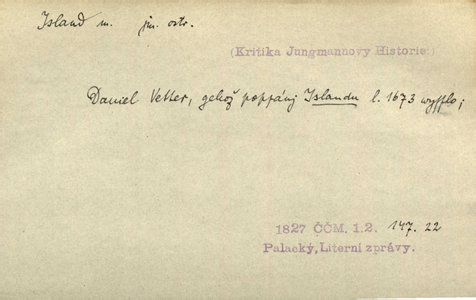 Island m. jm. ostr.
(Kritika Jungmannovy Historie:)
Daniel Vetter, gehož poppánj Islandu l. 1673 wyšslo;
1827 ČČM. 1.2. 147. 22
Palacký, Literní zprávy.